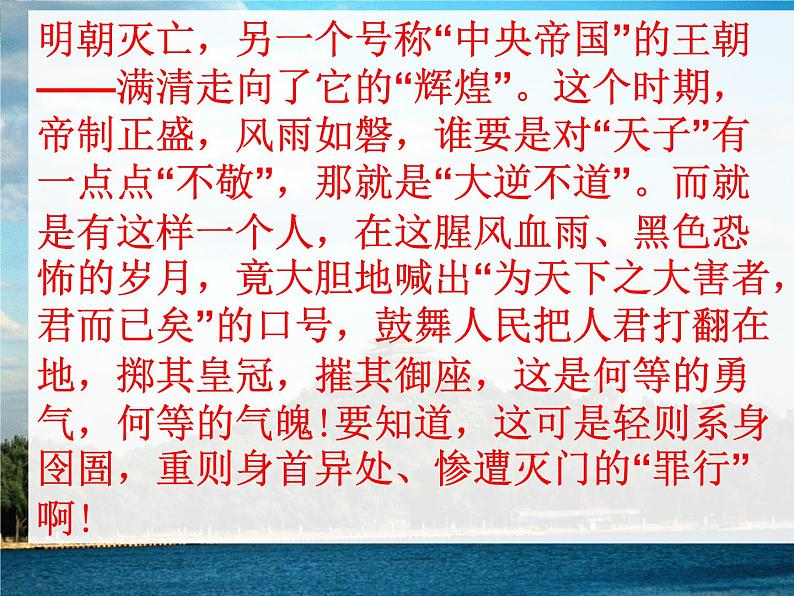 明朝灭亡，另一个号称“中央帝国”的王朝
——满清走向了它的“辉煌”。这个时期，
帝制正盛，风雨如磐，谁要是对“天子”有
一点点“不敬”，那就是“大逆不道”。而就
是有这样一个人，在这腥风血雨、黑色恐
怖的岁月，竟大胆地喊出“为天下之大害者，
君而已矣”的口号，鼓舞人民把人君打翻在
地，掷其皇冠，摧其御座，这是何等的勇
气，何等的气魄!要知道，这可是轻则系身
囹圄，重则身首异处、惨遭灭门的“罪行”
啊!